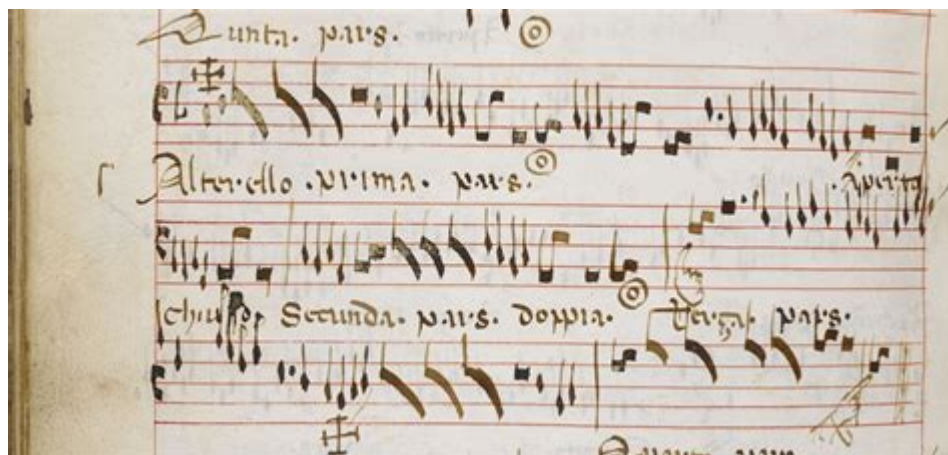 Quinta. pars.
Salterello. prima. pars. Aperto
chiuso Secunda. pars. doppia. Terza. pars.